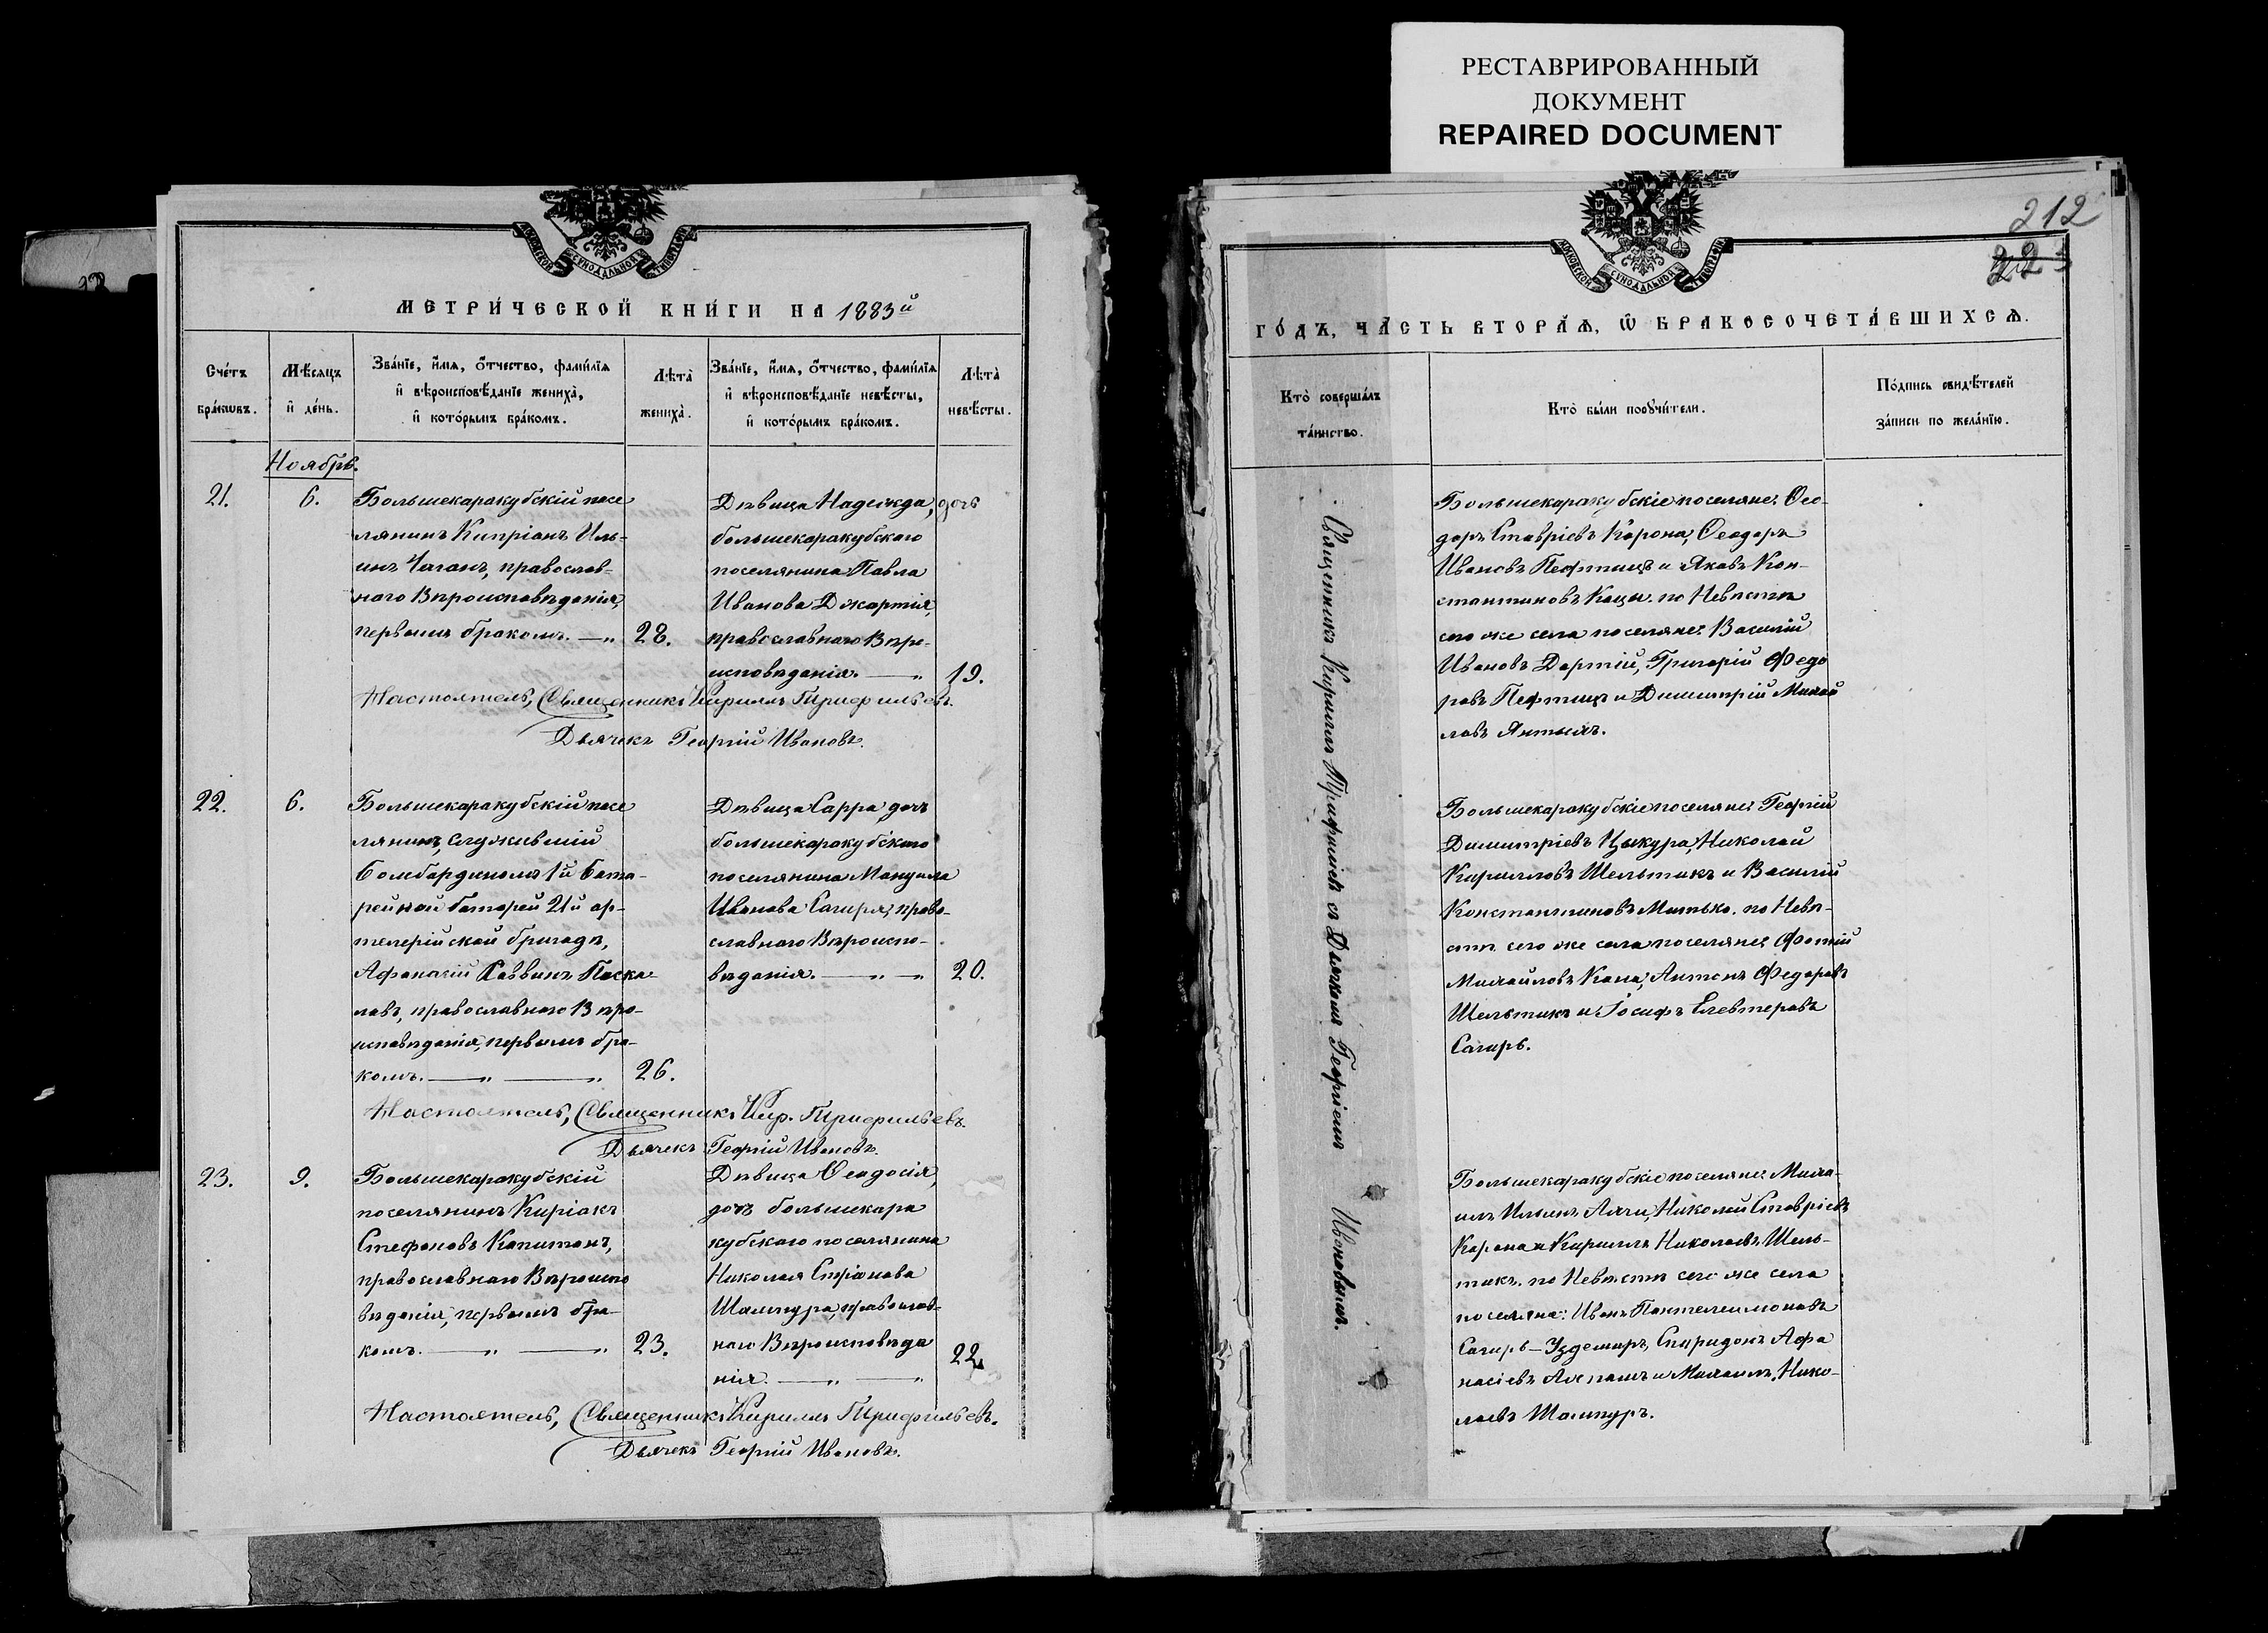 РЕСТАВРИРОВАННЫЙ
ДОКУМЕНТ
REPAIRED DOCUMENT
МОСКОВСКОЙ СѴНОДАЛЬНОЙ ТИПОГРАФІИ
МЕТРИ́ЧЕСКОЙ КНИ́ГИ НА 1883й
Сче́тъ бра́ковъ.
Мѣ́сяцъ и҆ де́нь.
Зва́нїе, и҆́мя, о҆́тчество, фами́лїя
и҆ вѣроисповѣ́данїе жениха̀,
и҆ кото́рымъ бра́комъ.
Лѣта̀ жениха̀.
Зва́нїе, и҆́мя, о҆́тчество, фами́лїя
и҆ вѣроисповѣ́данїе невѣ́сты,
и҆ кото́рымъ бра́комъ.
Лѣта̀ невѣ́сты.
Ноябрь.
21.
6.
Большекаракубскій посе
лянинъ Кипріанъ Иль-
инъ Чаганъ, православ-
наго Вѣроисповѣданія,
первымъ бракомъ. — „
28.
Дѣвица Надежда, дочь
большекаракубскаго
поселянина Павла
Иванова Джартія,
православнаго Вѣро-
исповѣданія. — „
19.
Настоятель, Священникъ Кириллъ Трифильевъ.
Дьячекъ Георгій Ивановъ.
22.
6.
Большекаракубскій посе
лянинъ, служившій
бомбардиромъ 1й бата-
рейной батареи 21й ар-
тилерійской бригады,
Афанасій Саввинъ Паска
ловъ, православнаго Вѣро-
исповѣданія, первымъ бра-
комъ. — „ — „
26.
Дѣвица Сарра, дочь
большекаракубскаго
поселянина Мануила
Иванова Сагиря, право-
славнаго Вѣроиспо-
вѣданія. — „ —
20.
Настоятель, Священникъ Кир. Трифильевъ.
Дьячекъ Георгій Ивановъ.
23.
9.
Большекаракубскій
поселянинъ Киріакъ
Стефановъ Капитанъ,
православнаго Вѣроиспо
вѣданія, первымъ бра-
комъ. — „ — „
23.
Дѣвица Ѳеодосія,
дочь большекара
кубскаго поселянина
Николая
Шампура, православ-
наго Вѣроисповѣда
нія. — „ — „
22.
Настоятель, Священникъ Кириллъ Трифильевъ.
Дьячекъ Георгій Ивановъ.
212
МОСКОВСКОЙ СѴНОДАЛЬНОЙ ТИПОГРАФІИ
ГО́ДЪ, ЧА́СТЬ ВТОРА́Я, Ѡ҆ БРАКОСОЧЕТА́ВШИХСЯ.
Кто̀ соверша́лъ
та́инство.
Кто̀ бы́ли поꙋчи́тели.
По́дпись свидѣ́телей
за́писи по жела́нїю.
Священникъ Кириллъ Трифиліевъ съ Дьячкомъ Георгіемъ Ивановымъ.
Большекаракубскіе поселяне: Ѳео-
доръ Ставріевъ Карона, Ѳеодоръ
Ивановъ Пефтицъ и Яковъ Кон-
стантиновъ Кацы. по Невѣстѣ
сего же села поселяне: Василій
Ивановъ Дартій, Григорій Федо
ровъ Пефтицъ и Димитрій Михай
ловъ
Большекаракубскіе поселяне: Георгій
Димитріевъ Цыкура, Николай
Кирилловъ Шельтикъ и Василій
Константиновъ Матько. по Невѣ-
стѣ сего же села поселяне: Фотій
Михайловъ Капа, Антонъ Федоровъ
Шельтикъ и Іосифъ Елевтеровъ
Сагирь.
Большекаракубскіе поселяне: Миха-
илъ Ильинъ Алчи, Николай Ставріевъ
Карона и Кириллъ Николаевъ Шель-
тикъ. по Невѣстѣ сего же села
поселяне: Иванъ Пантелеимоновъ
Сагирь—Уздемиръ, Спиридонъ Афа
насіевъ и Михаилъ Нико-
лаевъ Шампуръ.